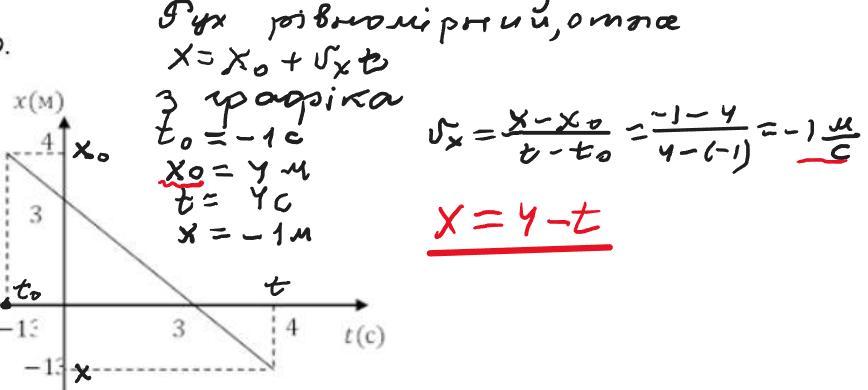 Рух рівномірний, отже
x = x₀ + υₓ t
З графіка
t₀ = -1 с
x₀ = 4 м
t = 4 с
x = -1 м
υₓ = (x - x₀)/(t - t₀) = (-1 - 4)/(4 - (-1)) = -1 м/с
x = 4 - t
x(м)
4
x₀
3
t₀
t
-1
3
4
t(с)
-1
x